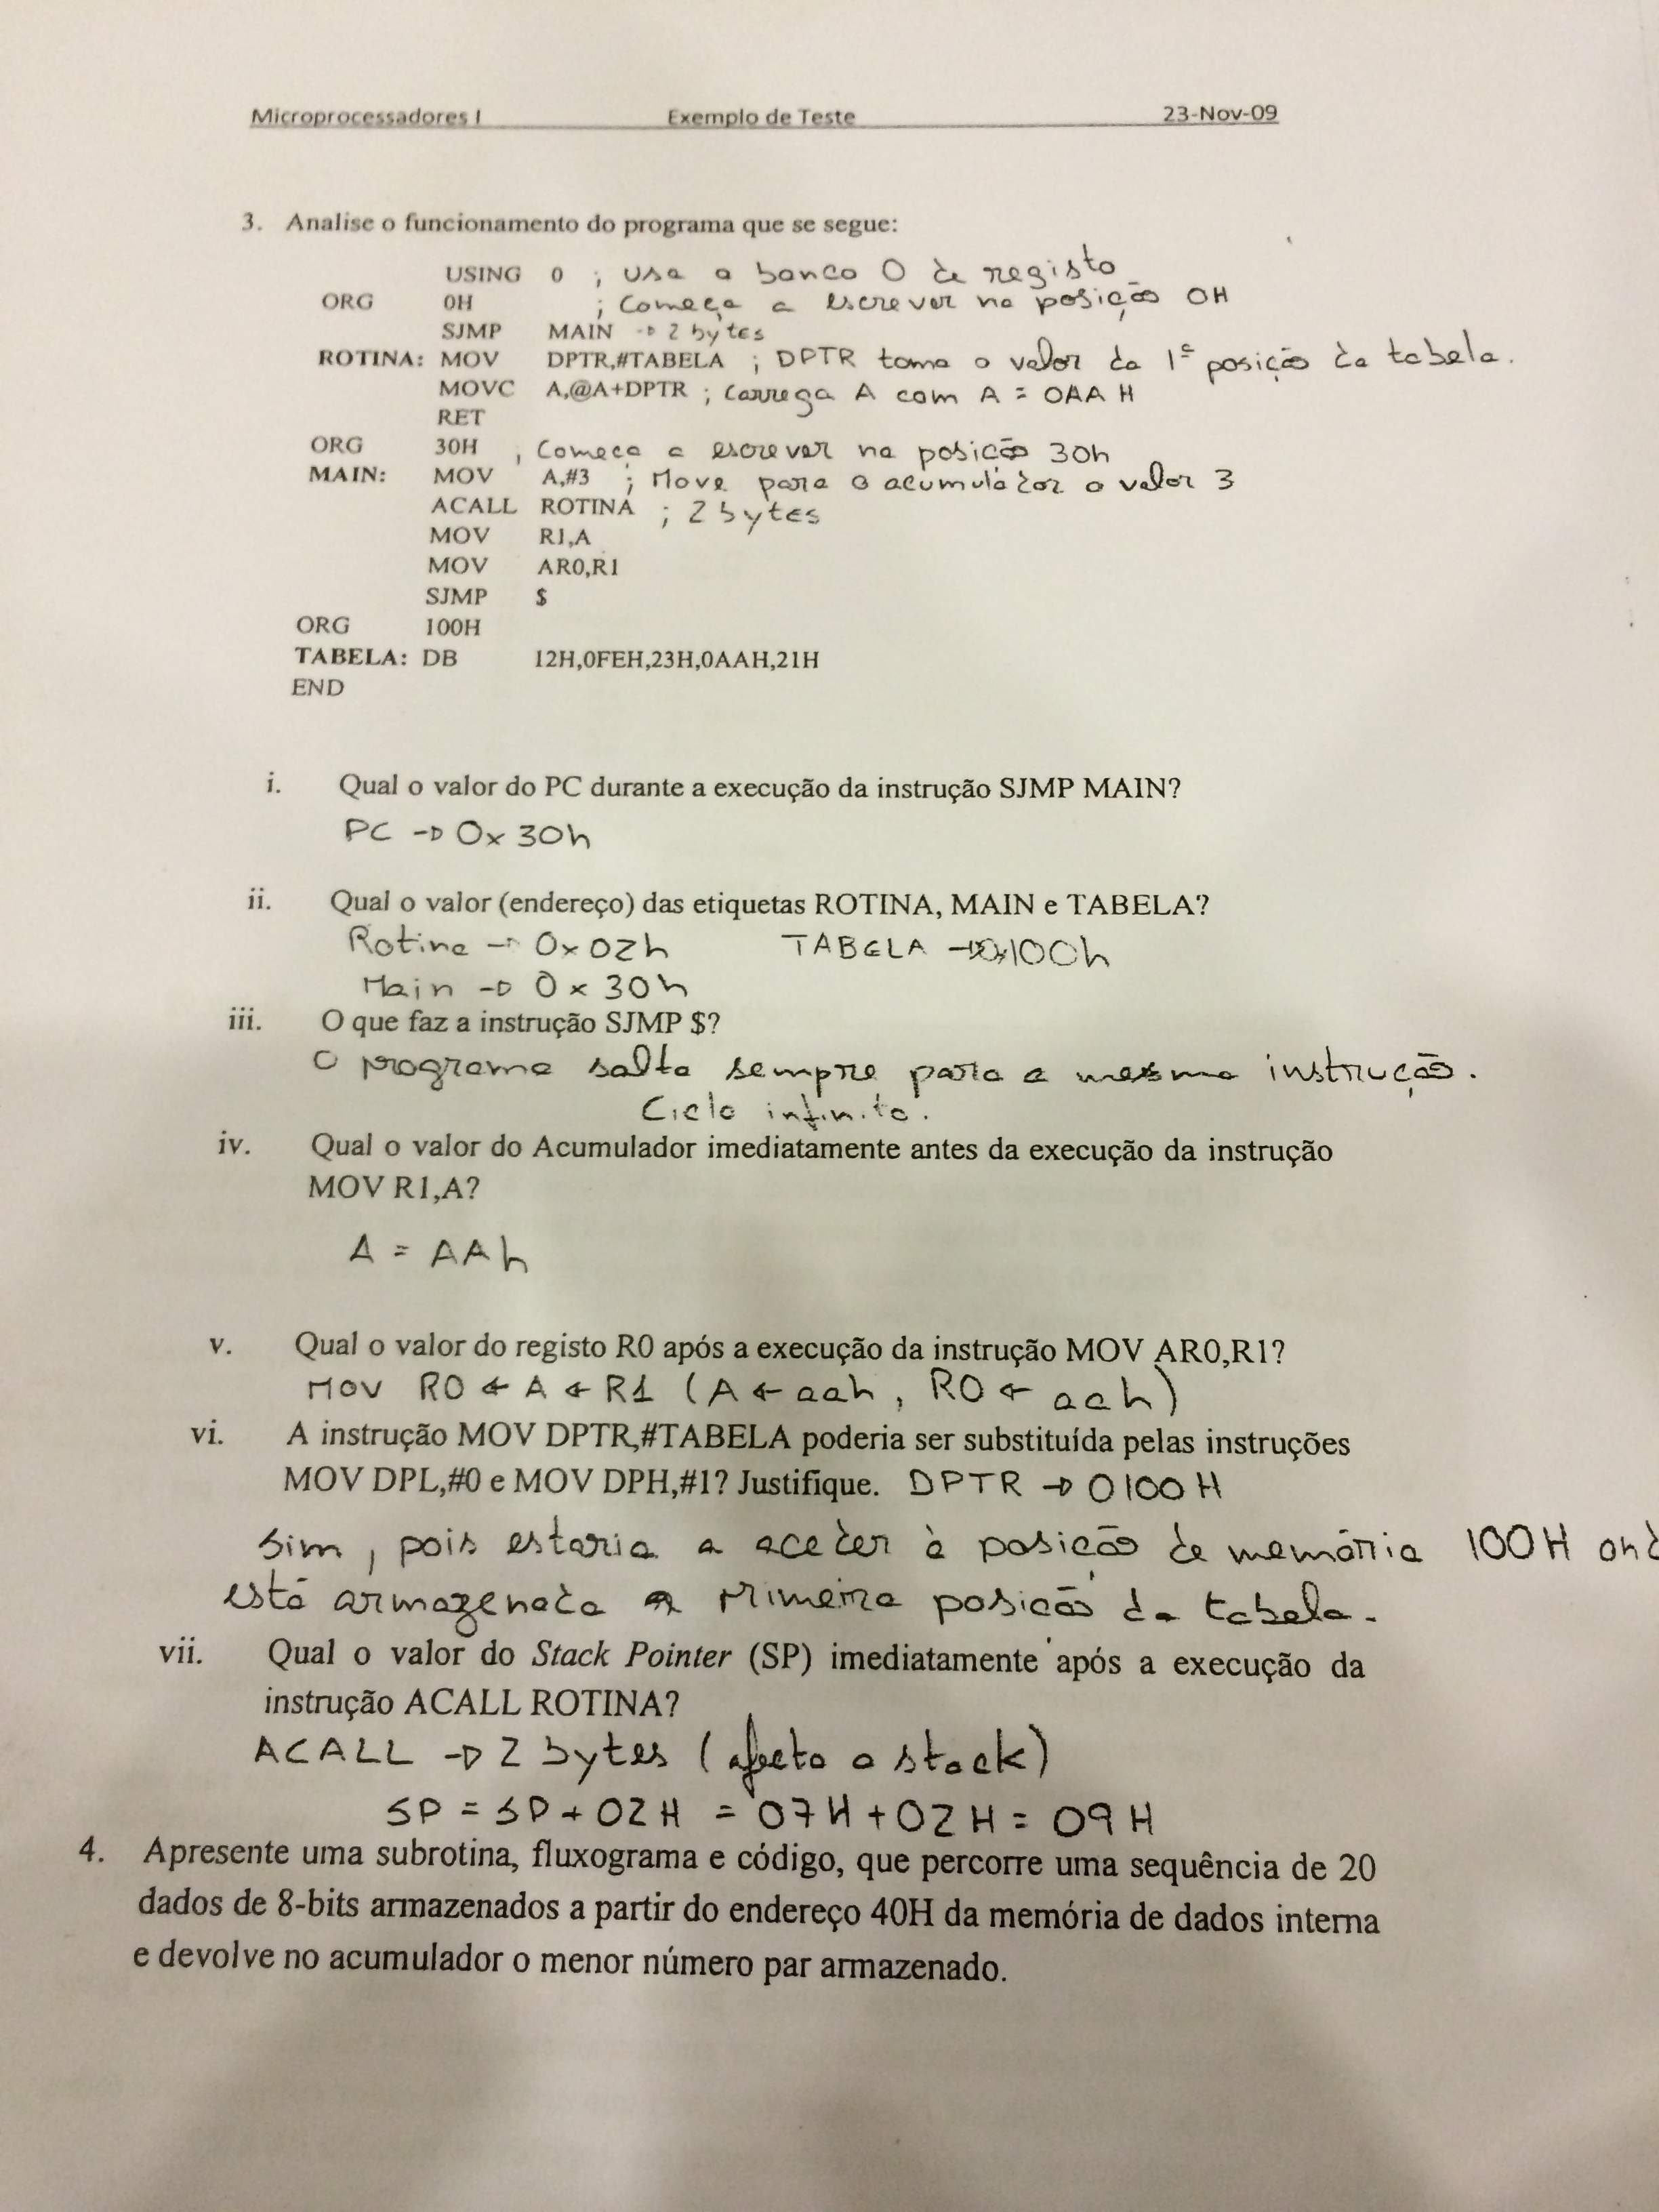 Microprocessadores I Exemplo de Teste 23-Nov-09
3. Analise o funcionamento do programa que se segue:
USING 0 ; Usa o banco 0 de registo
ORG 0H ; Começa a escrever na posição 0H
SJMP MAIN → 2 bytes
ROTINA: MOV DPTR,#TABELA ; DPTR toma o valor da 1ª posição da tabela.
MOVC A,@A+DPTR ; Carrega A com A = 0AAH
RET
ORG 30H , Começa a escrever na posição 30h
MAIN: MOV A,#3 ; Move para o acumulador o valor 3
ACALL ROTINA ; 2 bytes
MOV R1,A
MOV AR0,R1
SJMP $
ORG 100H
TABELA: DB 12H,0FEH,23H,0AAH,21H
END
i. Qual o valor do PC durante a execução da instrução SJMP MAIN?
PC → 0x30h
ii. Qual o valor (endereço) das etiquetas ROTINA, MAIN e TABELA?
Rotina → 0x02h TABELA → 0x100h
Main → 0x30h
iii. O que faz a instrução SJMP $?
O programa salta sempre para a mesma instrução.
Ciclo infinito.
iv. Qual o valor do Acumulador imediatamente antes da execução da instrução
MOV R1,A?
A = AAh
v. Qual o valor do registo R0 após a execução da instrução MOV AR0,R1?
MOV R0 ← A ← R1 (A ← aah, R0 ← aah)
vi. A instrução MOV DPTR,#TABELA poderia ser substituída pelas instruções
MOV DPL,#0 e MOV DPH,#1? Justifique. DPTR → 0100H
Sim, pois estaria a aceder à posição de memória 100H ond
está armazenada a primeira posição da tabela.
vii. Qual o valor do Stack Pointer (SP) imediatamente após a execução da
instrução ACALL ROTINA?
ACALL → 2 bytes (afecta o stack)
SP = SP + 02H = 07H + 02H = 09H
4. Apresente uma subrotina, fluxograma e código, que percorre uma sequência de 20
dados de 8-bits armazenados a partir do endereço 40H da memória de dados interna
e devolve no acumulador o menor número par armazenado.